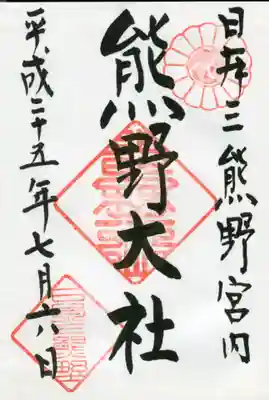 日本三熊野宮内
熊野大社
平成二十五年七月六日